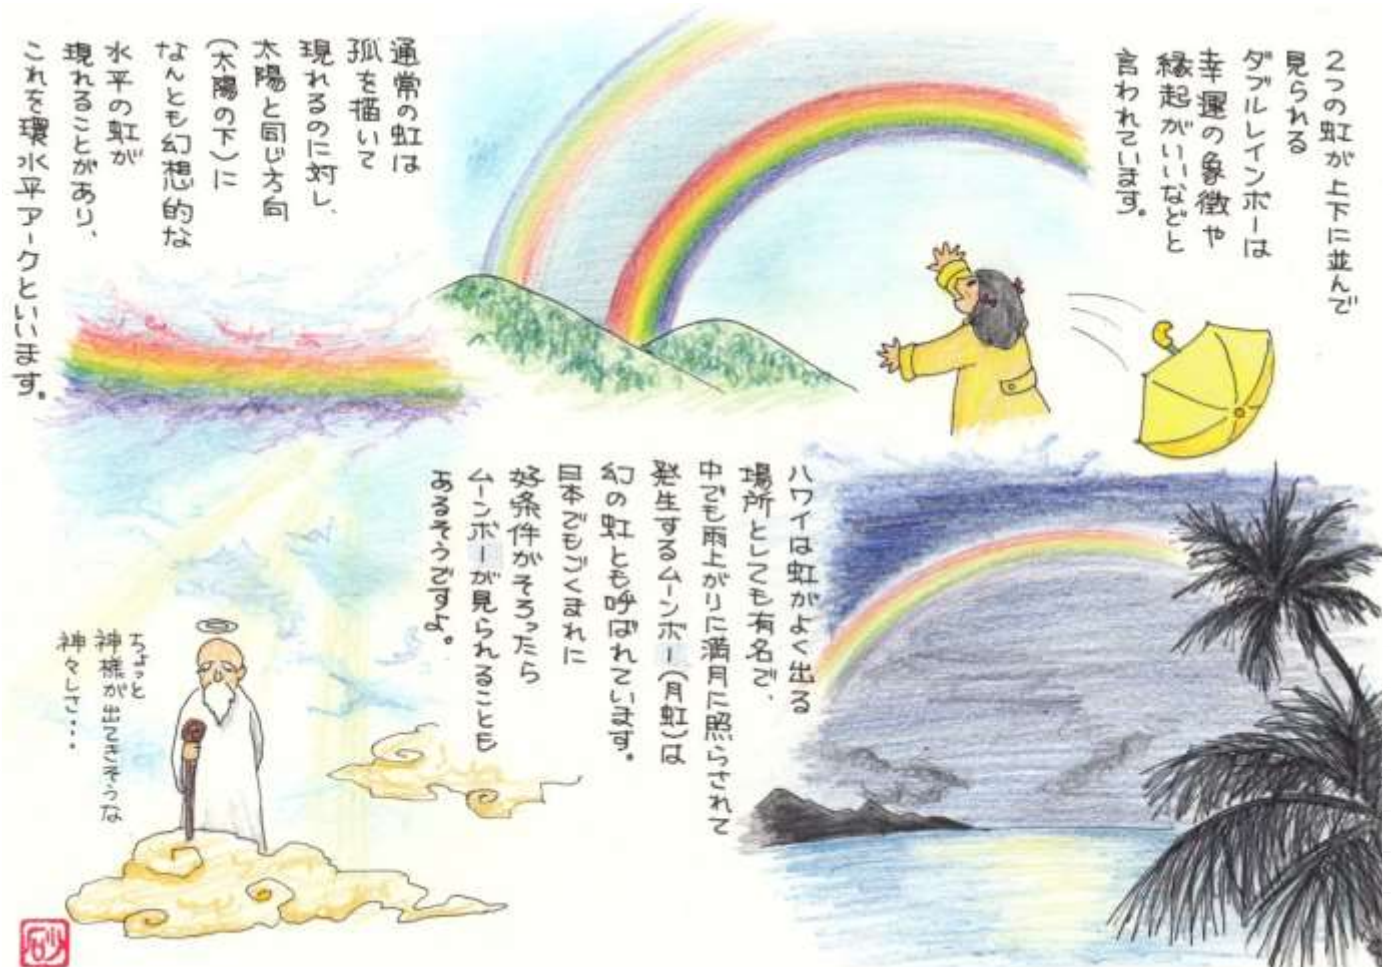 2つの虹が上下に並んで
見られる
ダブルレインボーは
幸運の象徴や
縁起がいいなどと
言われています。
通常の虹は
孤を描いて
現れるのに対し、
太陽と同じ方向
(太陽の下)に
なんとも幻想的な
水平の虹が
現れることがあり、
これを環水平アークといいます。
ハワイは虹がよく出る
場所としても有名で、
中でも雨上がりに満月に照らされて
発生するムーンボー(月虹)は
幻の虹とも呼ばれています。
日本でもごくまれに
好条件がそろったら
ムーンボーが見られることも
あるそうですよ。
ちょっと
神様が出てきそうな
神々しさ・・・
砂